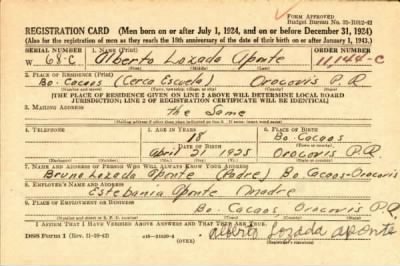 Form Approved
Budget Bureau No. 33-R012-42
REGISTRATION CARD (Men born on or after July 1, 1924, and on or before December 31, 1924)
(Also for the registration of men as they reach the 18th anniversary of the date of their birth on or after January 1, 1943.)
SERIAL NUMBER 1. NAME (Print) ORDER NUMBER
W 68-C Alberto Lozada Aponte 11,144-C
(First) (Middle) (Last)
2. PLACE OF RESIDENCE (Print)
Bo. Cacaos (Cerca Escuela) Orocovis P.R.
(Number and street) (Town, township, village, or city) (County) (State)
[THE PLACE OF RESIDENCE GIVEN ON LINE 2 ABOVE WILL DETERMINE LOCAL BOARD
JURISDICTION; LINE 2 OF REGISTRATION CERTIFICATE WILL BE IDENTICAL]
3. MAILING ADDRESS
the Same
4. TELEPHONE 5. AGE IN YEARS 6. PLACE OF BIRTH
18 Bo. Cacaos
DATE OF BIRTH
April 21 1925 Orocovis P.R.
(Exchange) (Number) (Mo.) (Day) (Yr.) (State or country)
7. NAME AND ADDRESS OF PERSON WHO WILL ALWAYS KNOW YOUR ADDRESS
Bruno Lozada Aponte (Padre) Bo Cacaos-Orocovis
8. EMPLOYER'S NAME AND ADDRESS
Estebania Aponte Madre
9. PLACE OF EMPLOYMENT OR BUSINESS
Bo. Cacaos, Orocovis P.R.
(Number and street or R. F. D. number) (Town) (County) (State)
I AFFIRM THAT I HAVE VERIFIED ABOVE ANSWERS AND THAT THEY ARE TRUE.
DSS Form 1 (OVER) Alberto Lozada Aponte
(Registrant's signature)